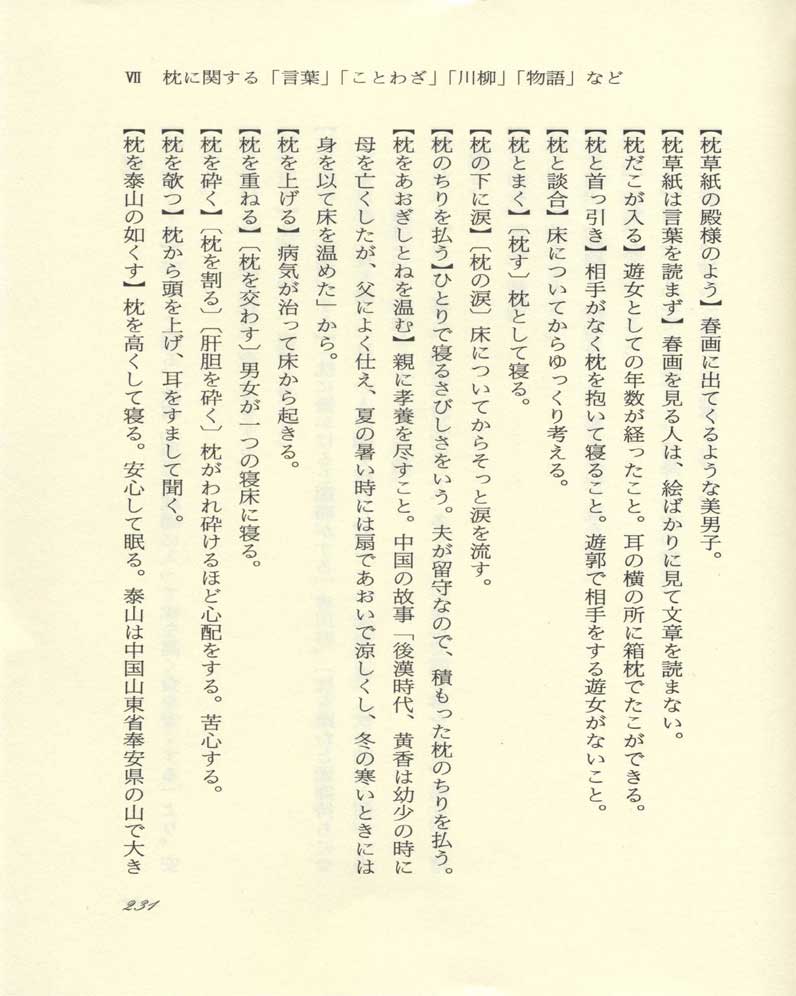 Ⅶ　枕に関する「言葉」「ことわざ」「川柳」「物語」など
【枕草紙の殿様のよう】春画に出てくるような美男子。
【枕草紙は言葉を読まず】春画を見る人は、絵ばかりに見て文章を読まない。
【枕だこが入る】遊女としての年数が経ったこと。耳の横の所に箱枕でたこができる。
【枕と首っ引き】相手がなく枕を抱いて寝ること。遊郭で相手をする遊女がないこと。
【枕と談合】床についてからゆっくり考える。
【枕とまく】〔枕す〕枕として寝る。
【枕の下に涙】〔枕の涙〕床についてからそっと涙を流す。
【枕のちりを払う】ひとりで寝るさびしさをいう。夫が留守なので、積もった枕のちりを払う。
【枕をあおぎしとねを温む】親に孝養を尽すこと。中国の故事「後漢時代、黄香は幼少の時に
母を亡くしたが、父によく仕え、夏の暑い時には扇であおいで涼しくし、冬の寒いときには
身を以て床を温めた」から。
【枕を上げる】病気が治って床から起きる。
【枕を重ねる】〔枕を交わす〕男女が一つの寝床に寝る。
【枕を砕く】〔枕を割る〕〔肝胆を砕く〕枕がわれ砕けるほど心配をする。苦心する。
【枕を欹つ】枕から頭を上げ、耳をすまして聞く。
【枕を泰山の如くす】枕を高くして寝る。安心して眠る。泰山は中国山東省奉安県の山で大き
231